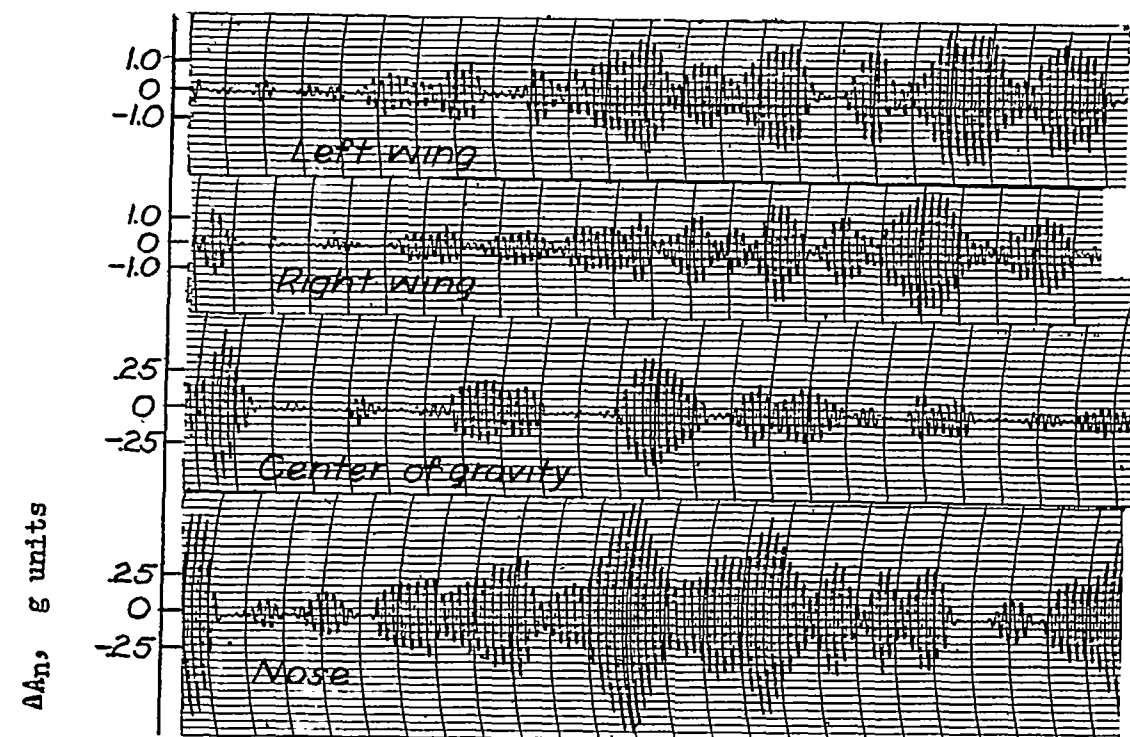 1.0
0
-1.0
Left wing
1.0
0
-1.0
Right wing
.25
0
-.25
Center of gravity
.25
0
-.25
Nose
ΔAn, g units